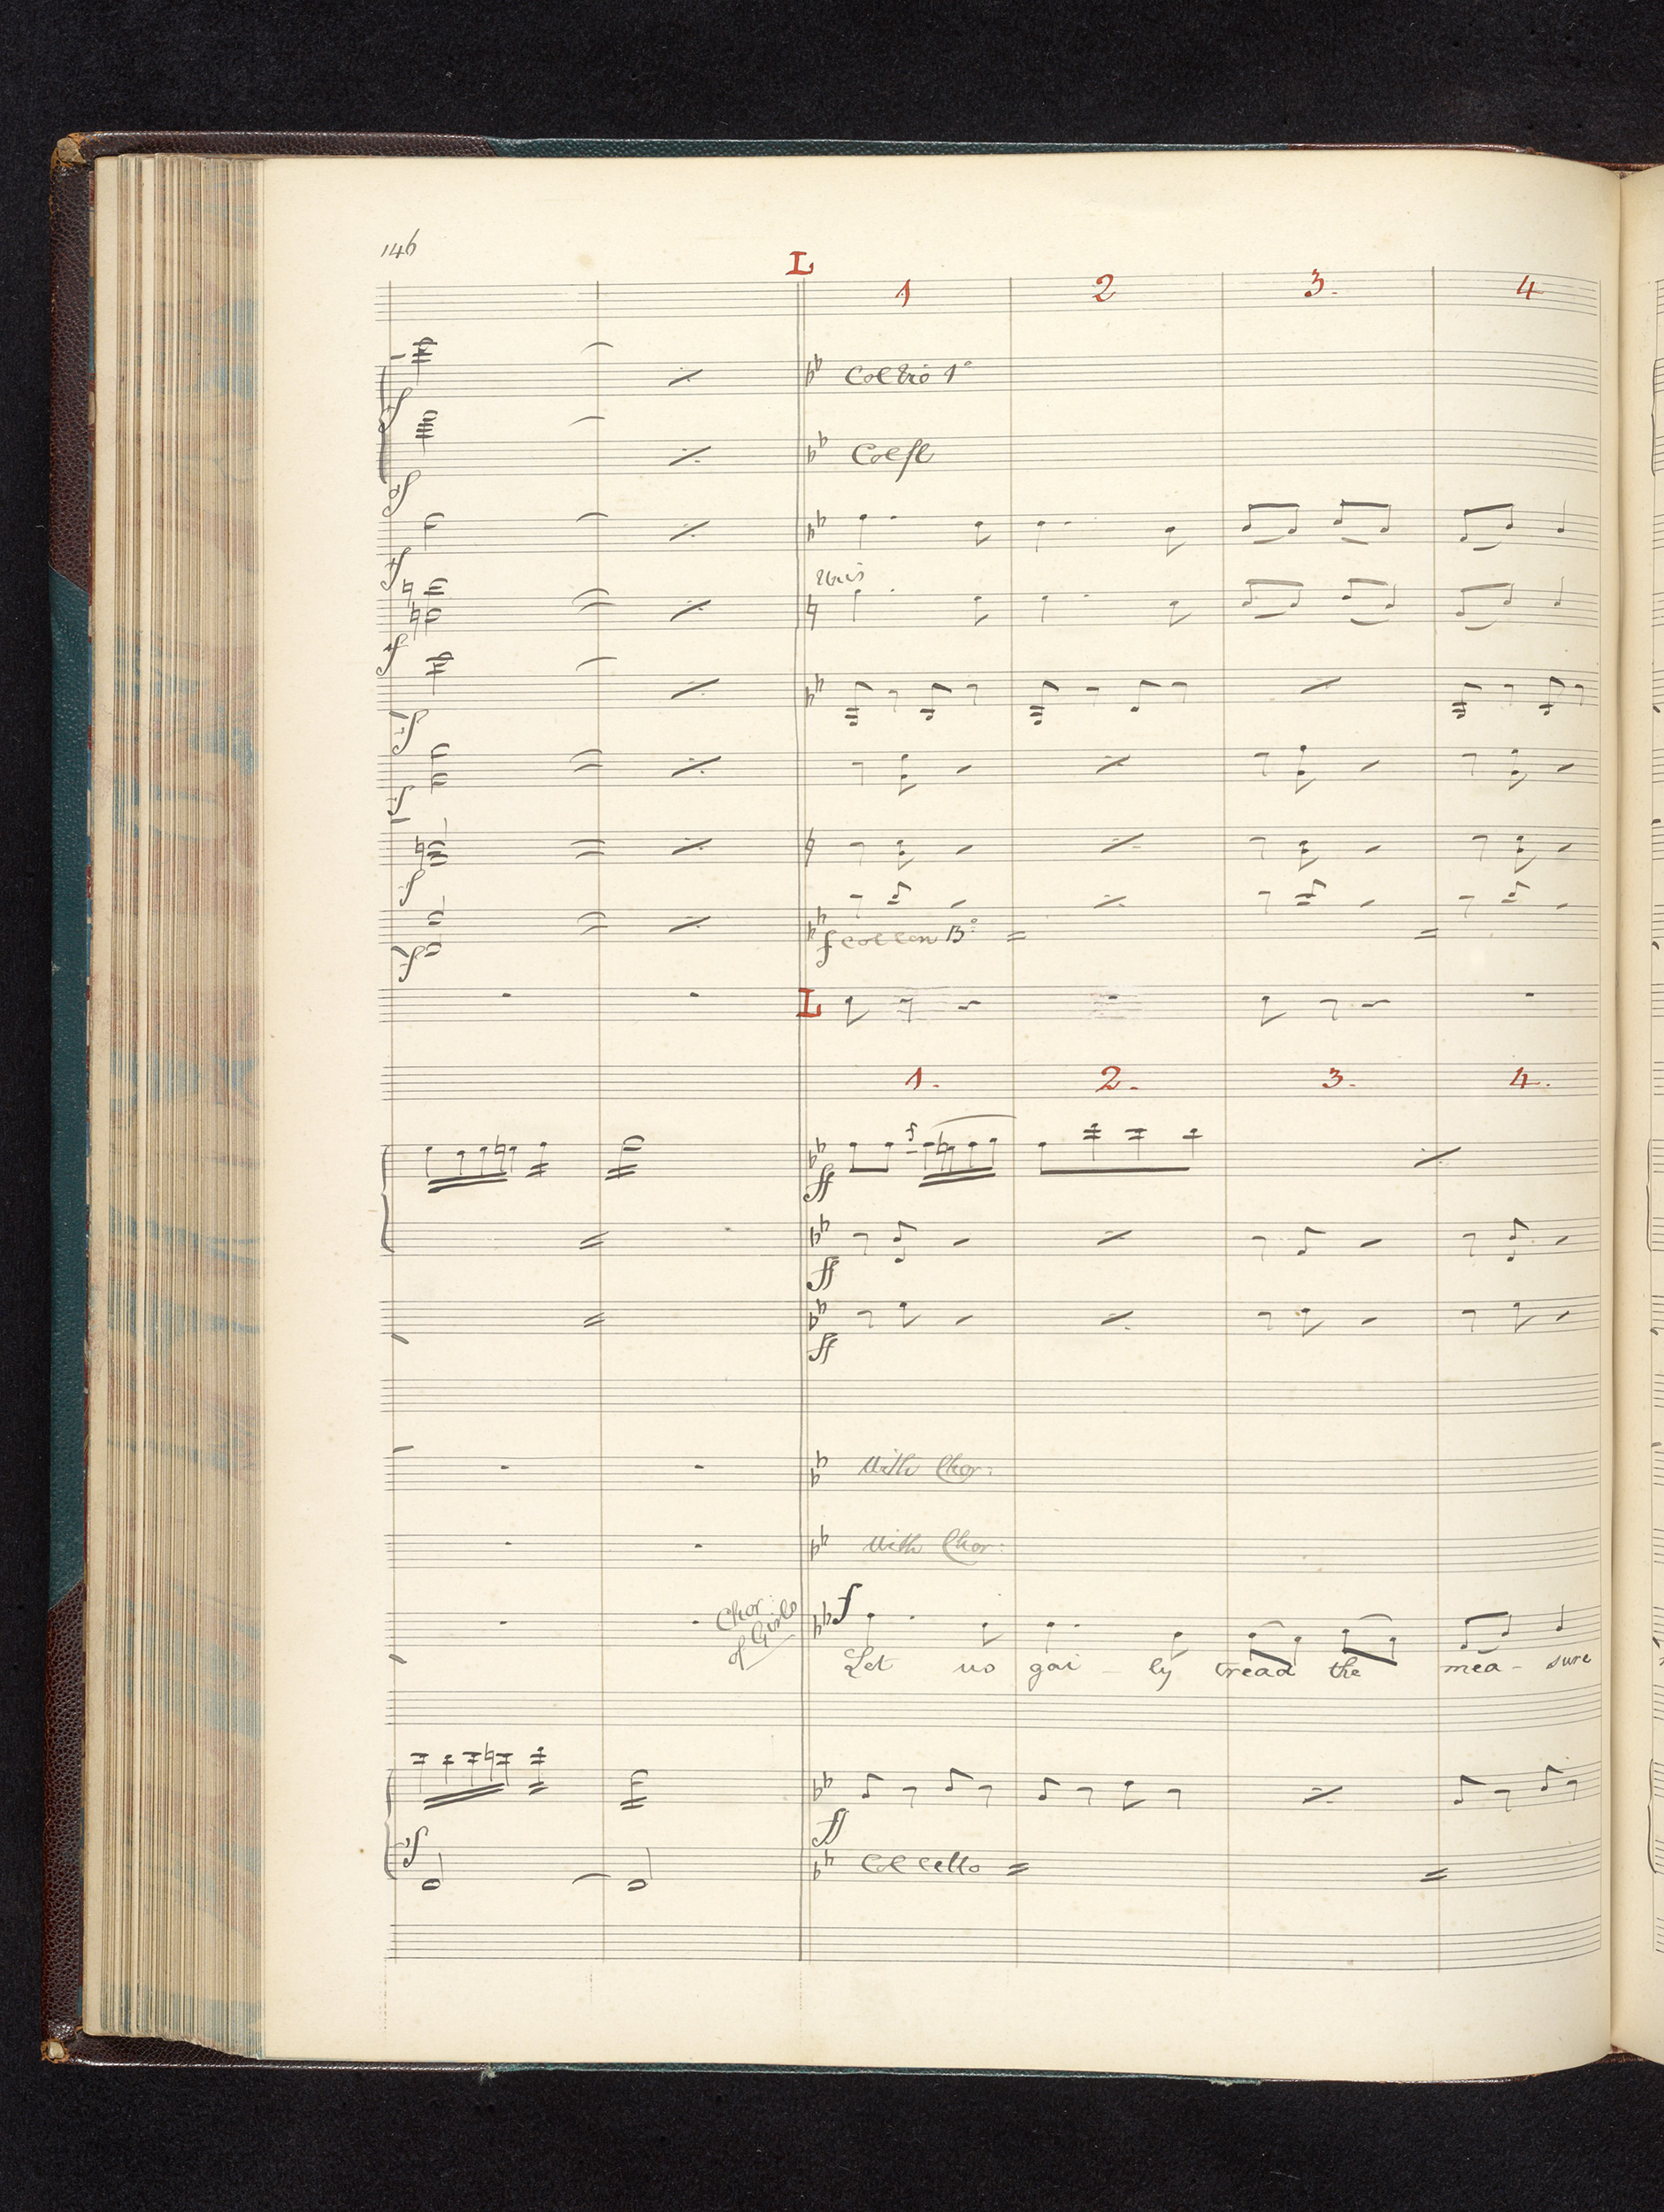 146
L
1 2 3. 4
Col Vio 1º
Col fl
Unis
f col Con Bº
L
1. 2. 3. 4.
ff
ff
ff
With Chor:
With Chor:
Chor: of Girls
f
Let us gai - ly tread the mea - sure
ff
Col Cello